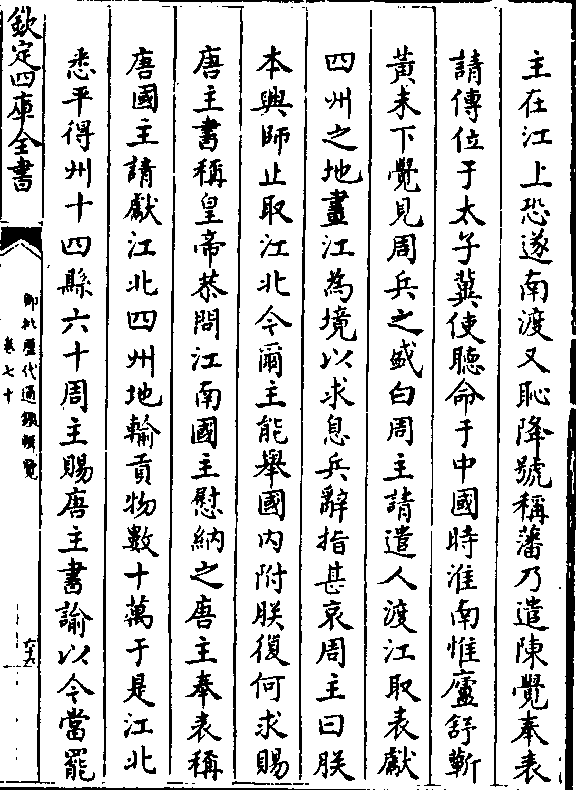 主在江上恐遂南渡又恥降號稱藩乃遣陳覺奉表
請傳位于太子冀使聽命于中國時淮南惟廬舒蘄
黃未下覺見周兵之盛白周主請遣人渡江取表獻
四州之地畫江為境以求息兵辭指甚哀周主曰朕
本興師止取江北今爾主能舉國內附朕復何求賜
唐主書稱皇帝恭問江南國主慰納之唐主奉表稱
唐國主請獻江北四州地輸貢物數十萬于是江北
悉平得州十四縣六十周主賜唐主書諭以今當罷
欽定四庫全書
御批歷代通鑑輯覽
卷七十